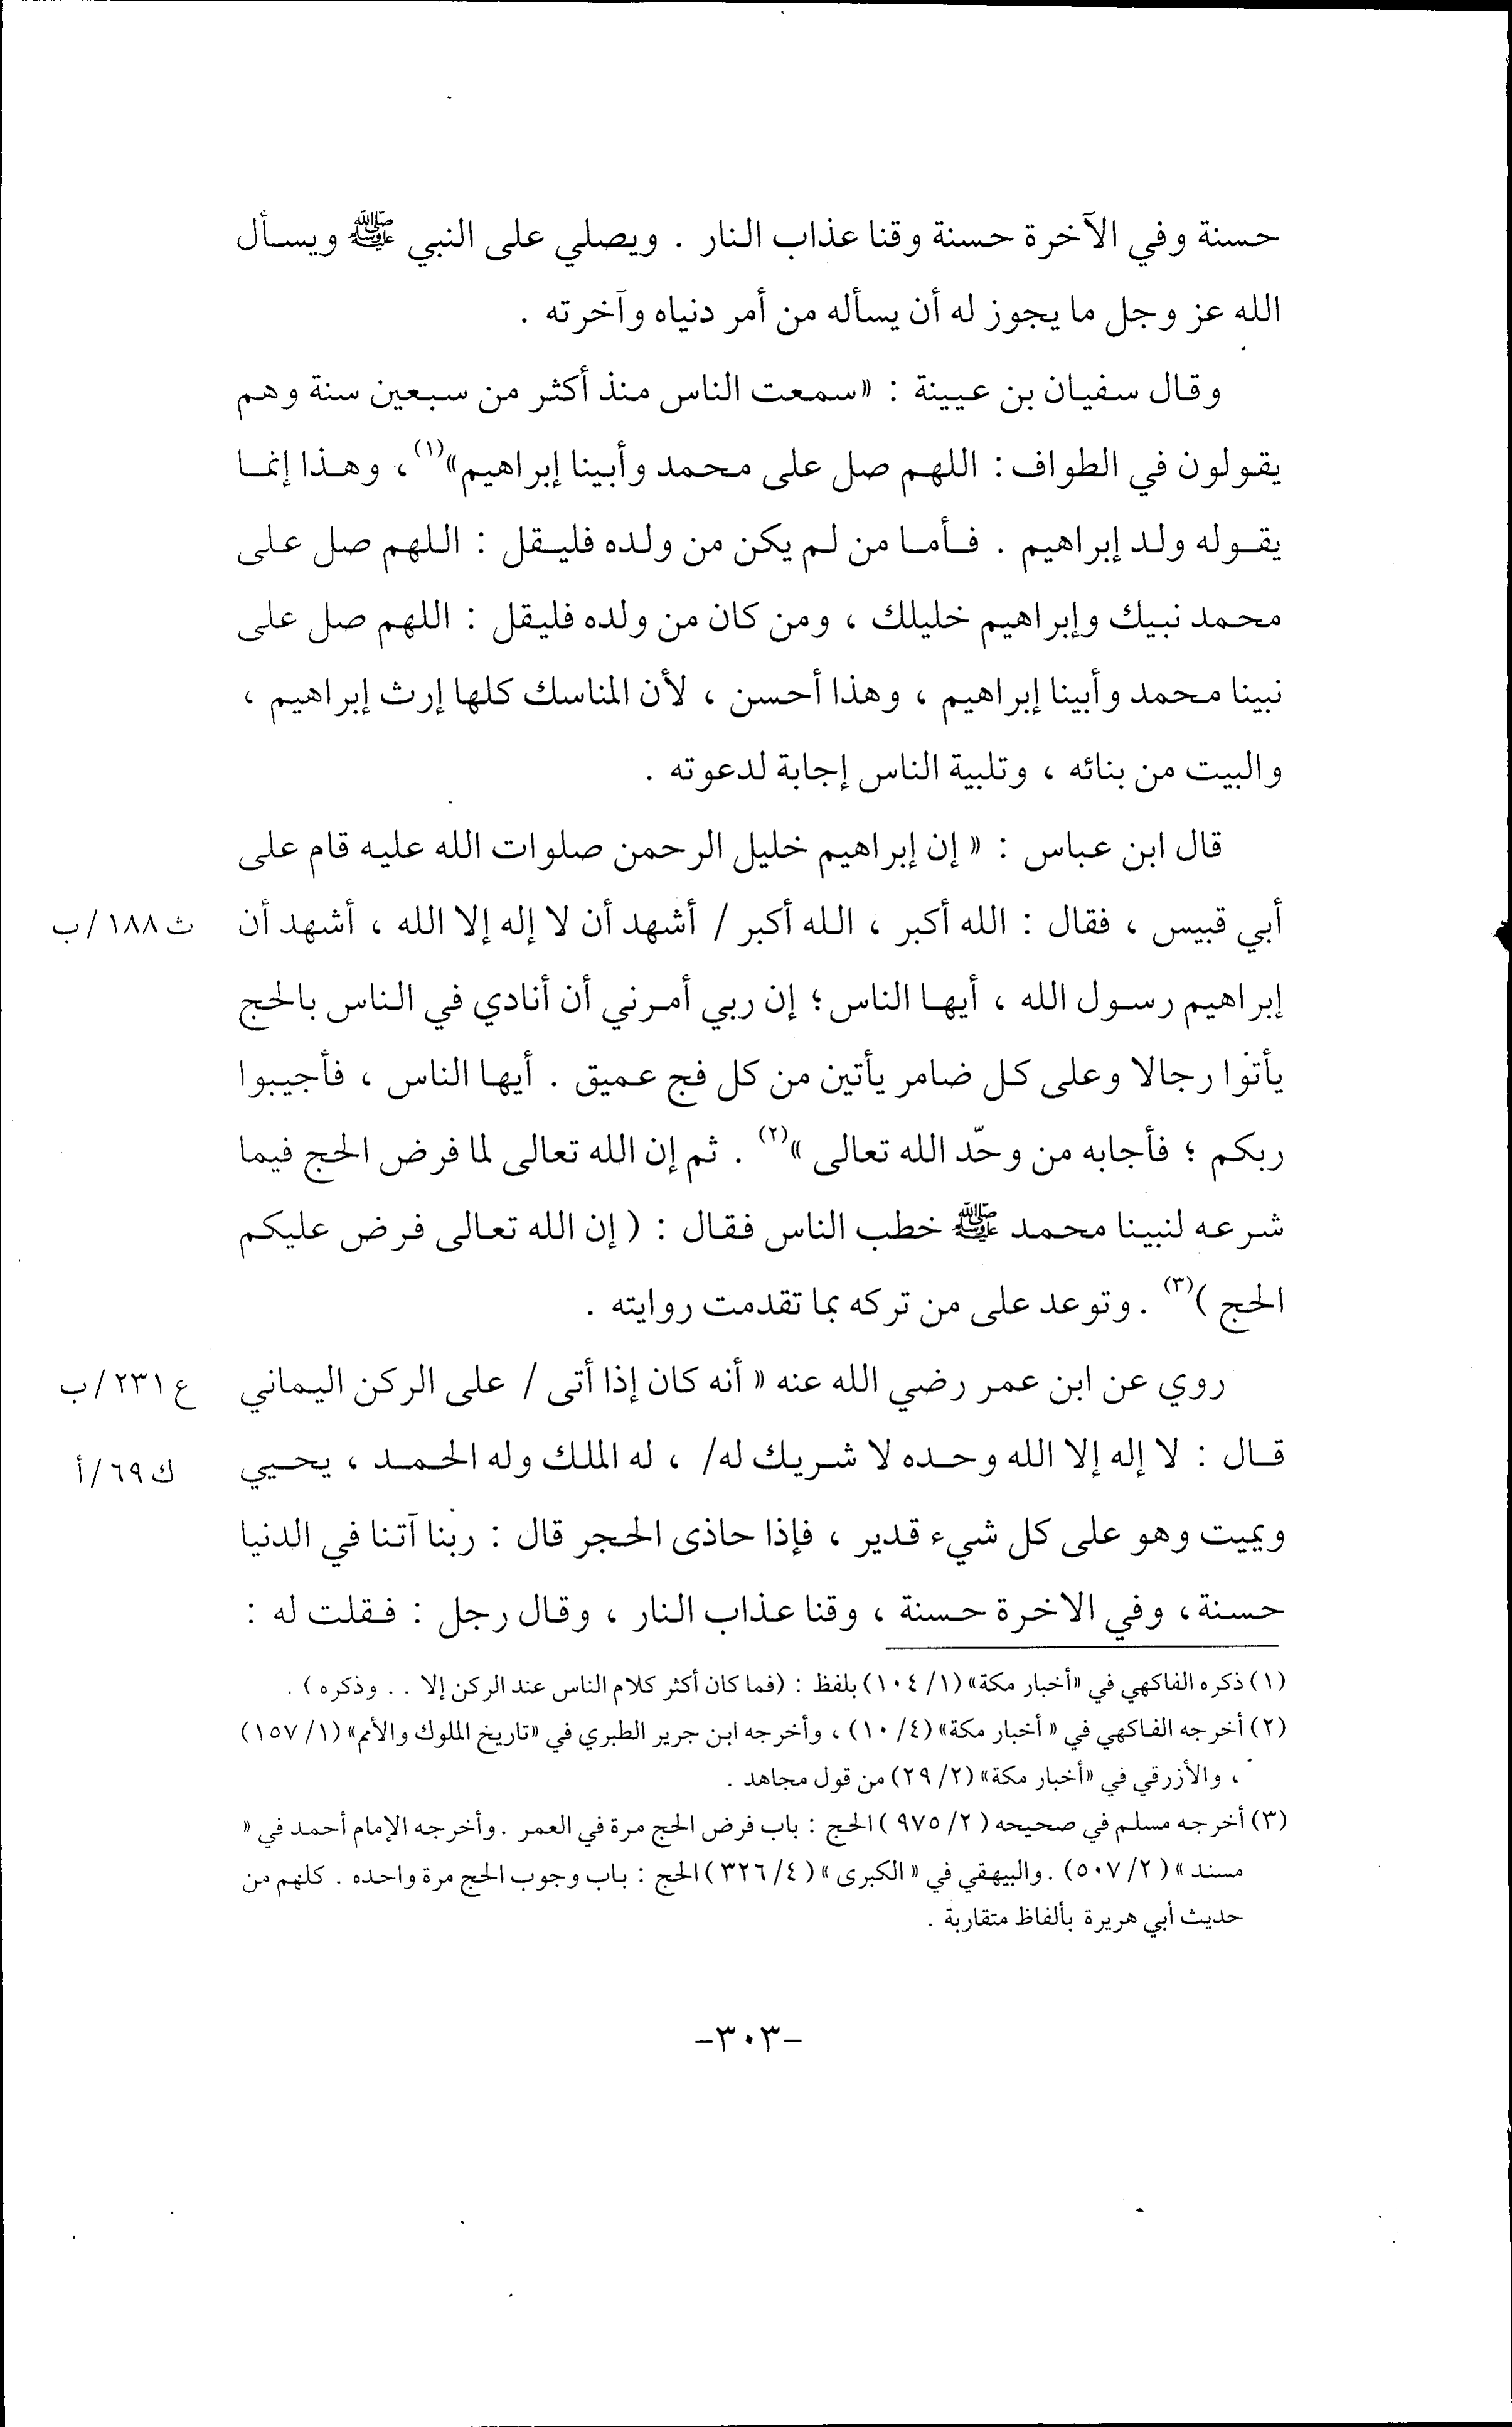 حسنة وفي الآخرة حسنة وقنا عذاب النار . ويصلي على النبي ﷺ ويسأل
الله عز وجل ما يجوز له أن يسأله من أمر دنياه وآخرته .
وقال سفيان بن عيينة : «سمعت الناس منذ أكثر من سبعين سنة وهم
يقولون في الطواف : اللهم صل على محمد وأبينا إبراهيم»(١) ، وهذا إنما
يقوله ولد إبراهيم . فأما من لم يكن من ولده فليقل : اللهم صل على
محمد نبيك وإبراهيم خليلك ، ومن كان من ولده فليقل : اللهم صل على
نبينا محمد وأبينا إبراهيم ، وهذا أحسن ، لأن المناسك كلها إرث إبراهيم ،
والبيت من بنائه ، وتلبية الناس إجابة لدعوته .
قال ابن عباس : « إن إبراهيم خليل الرحمن صلوات الله عليه قام على
أبي قبيس ، فقال : الله أكبر ، الله أكبر / أشهد أن لا إله إلا الله ، أشهد أن ث ١٨٨/ب
إبراهيم رسول الله ، أيها الناس ؛ إن ربي أمرني أن أنادي في الناس بالحج
يأتوا رجالا وعلى كل ضامر يأتين من كل فج عميق . أيها الناس ، فأجيبوا
ربكم ؛ فأجابه من وحّد الله تعالى »(٢) . ثم إن الله تعالى لما فرض الحج فيما
شرعه لنبينا محمد ﷺ خطب الناس فقال : ( إن الله تعالى فرض عليكم
الحج )(٣) . وتوعد على من تركه بما تقدمت روايته .
روي عن ابن عمر رضي الله عنه « أنه كان إذا أتى / على الركن اليماني ع ٢٣١/ب
قال : لا إله إلا الله وحده لا شريك له/ ، له الملك وله الحمد ، يحيي ك ٦٩/أ
ويميت وهو على كل شيء قدير ، فإذا حاذى الحجر قال : ربنا آتنا في الدنيا
حسنة ، وفي الاخرة حسنة ، وقنا عذاب النار ، وقال رجل : فقلت له :
(١) ذكره الفاكهي في «أخبار مكة» (١/ ١٠٤) بلفظ : (فما كان أكثر كلام الناس عند الركن إلا . . وذكره) .
(٢) أخرجه الفاكهي في « أخبار مكة» (٤/ ١٠) ، وأخرجه ابن جرير الطبري في «تاريخ الملوك والأمم» (١/ ١٥٧)
، والأزرقي في «أخبار مكة» (٢/ ٢٩) من قول مجاهد .
(٣) أخرجه مسلم في صحيحه ( ٢/ ٩٧٥ ) الحج : باب فرض الحج مرة في العمر . وأخرجه الإمام أحمد في «
مسند » ( ٢/ ٥٠٧) . والبيهقي في « الكبرى » ( ٤/ ٣٢٦ ) الحج : باب وجوب الحج مرة واحده . كلهم من
حديث أبي هريرة بألفاظ متقاربة .
-٣٠٣-